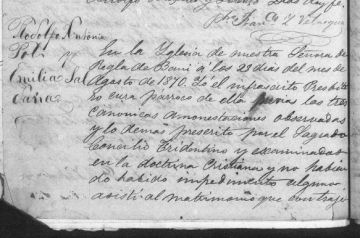 Pbro Franco X Velasquez
Rodolfo Antonio
Poli y
Emilia Sal
cana
En la Yglesia de nuestra Señora de
Regla de Bani á los 29 dias del mes de
Agosto de 1870. Yó el infrascrito Presbite
ro cura parroco de ella previas las tres
canonicas amonestaciones observadas
y lo demas prescrito por el Sagrado
Concilio Tridentino y examinados
en la doctrina Cristiana y no habien
do habido impedimento alguno
asistí al matrimonio que contraje